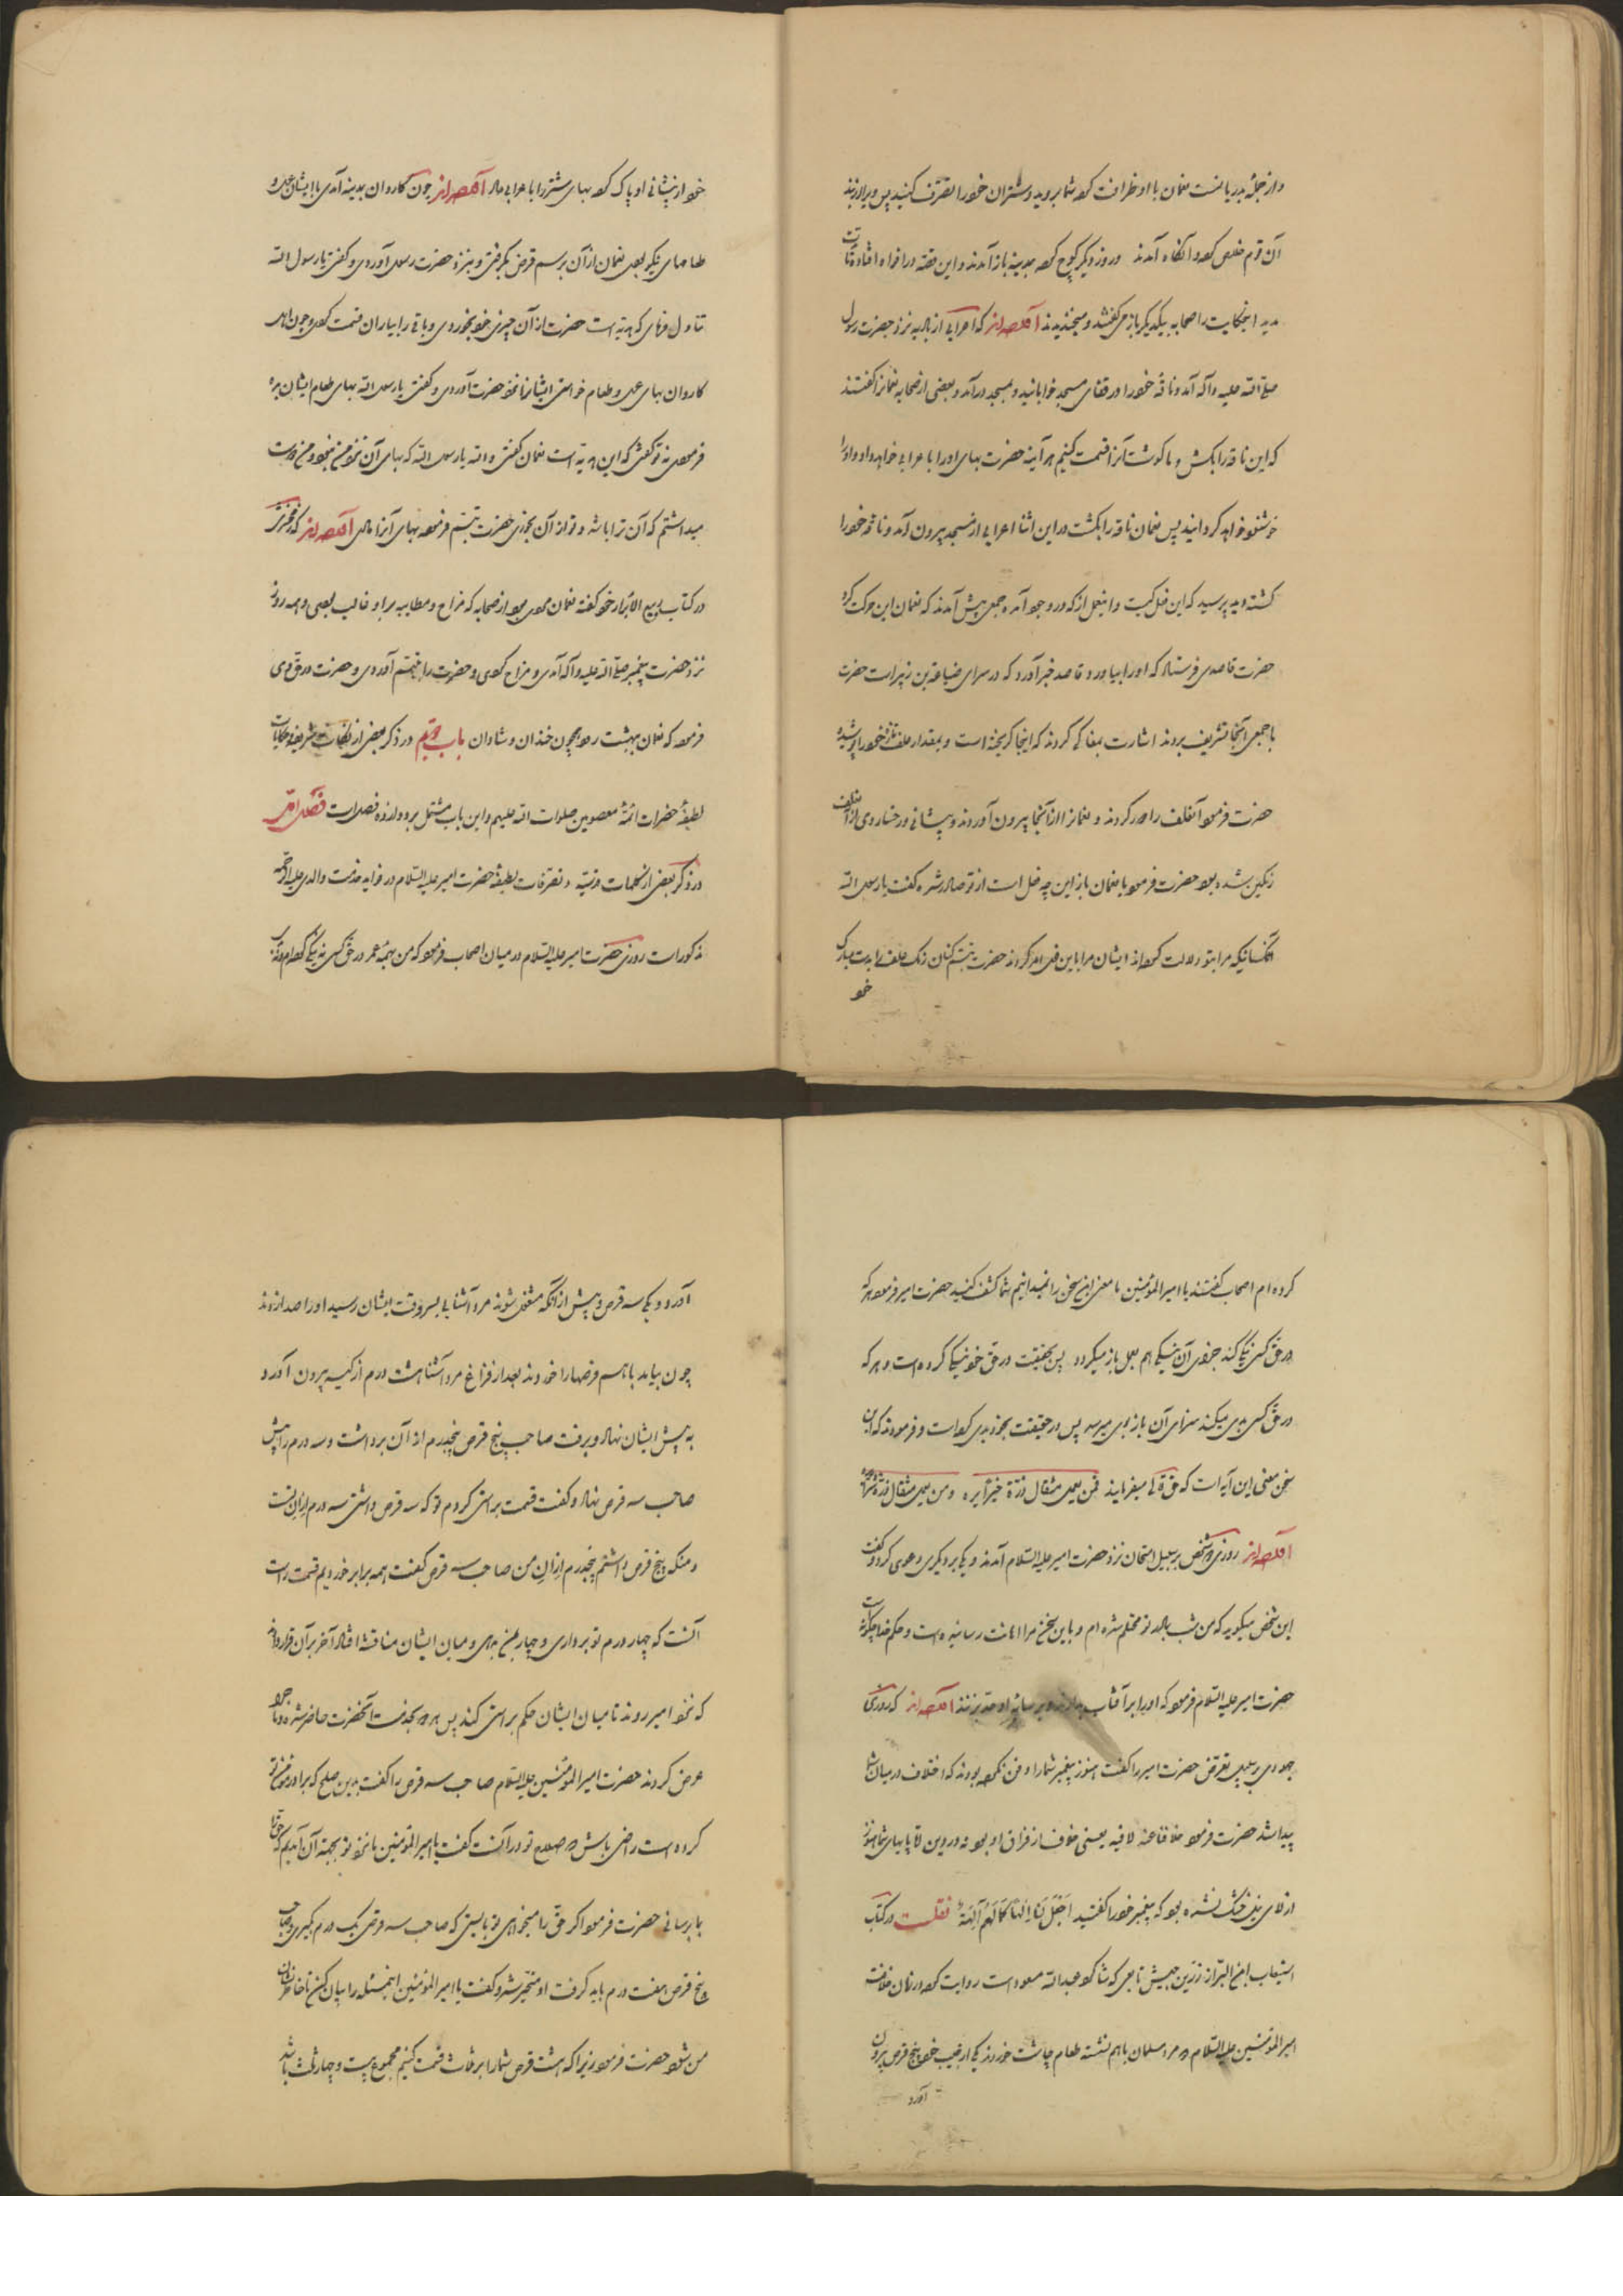 و از جمله بدریانست نعمان با او ظرافت کرد شما بروید و شتران خود را تصرف کنید پس ویرا بردند
آن قوم خلاص کرد و آنگاه آمدند و روز دیگر کوچ کرد بمدینه باز آمدند و این قصه در افواه افتاد تا
مدید اینحکایت را صحابه بیکدیگر باز می‌گفتند و میخندیدند که اعرابی از بادیه نزد حضرت رسول
صلی الله علیه وآله آمد و ناقهٔ خود را در قفای مسجد خوابانید و بمسجد درآمد و بعضی از صحابه نعمان را گفتند
که این ناقه را بکش و ما گوشت آنرا قسمت کنیم هر آینه حضرت بهای او را باعرابی خواهد داد و او را
خوشنود خواهد گردانید پس نعمان ناقه را بکشت در این اثنا اعرابی از مسجد بیرون آمد و ناقهٔ خود را
کشته دید پرسید که این فعل کیست و اینعمل از که در وجود آمده جمعی پیش آمدند که نعمان این حرکت کرد
حضرت قاصدی فرستاد که او را بیاورد و قاصد خبر آورد که در سرای ضباعه بن زبیر است حضرت
با جمعی آنجا تشریف بردند اشارت بمغاکی کردند که اینجا گریخته است و بمقدار علف تازه خود را پوشیده
حضرت فرمود آنعلف را دور کردند و نعمان را از آنجا بیرون آوردند و پیشانی و رخسار وی از آن علف
رنگین شده بود حضرت فرمود یا نعمان باز این چه فعل است از تو صادر شده گفت یا رسول الله
آنکسانیکه مرا بتو دلالت کرده‌اند ایشان مرا باین فعل امر کردند حضرت تبسم کنان رنگ علف را بدست مبارک
خود
خود از پیشانی او پاک کرد بهای شتر را باعرابی داد چون کاروان بمدینه آمدی با ایشان عسل و
طعامهای نیکو بودی نعمان از آن برسم قرض بگرفتی و بنزد حضرت رسول آوردی و گفتی یا رسول الله
تناول فرمای که هدیه است حضرت از آن چیزی خود بخوردی و باقی را بیاران قسمت کردی و چون اهل
کاروان بهای عسل و طعام خواستی ایشانرا نزد حضرت آوردی و گفتی یا رسول الله بهای طعام ایشان بده
فرمودی نه تو گفتی که این هدیه است نعمان گفتی والله یا رسول الله که بهای آن نزد من نبود و من دوست
میداشتم که آن ترا باشد و تو از آن بخوری حضرت تبسم فرموده بهای آنرا دادی که زمخشری
در کتاب ربیع الابرار خود گفته نعمان مردی بود از صحابه که مزاح و مطایبه بر او غالب بودی و همه روز
نزد حضرت پیغمبر صلی الله علیه وآله آمدی و مزاح کردی و حضرت را بتبسم آوردی و حضرت در حق وی
فرمود که نعمان ببهشت رود همچون خندان و شادان باب دویم در ذکر بعضی از نکات شریفه و حکایات
لطیفهٔ حضرات ائمهٔ معصومین صلوات الله علیهم و این باب مشتمل بر دوازده فصل است فصل اول
در ذکر بعضی از کلمات مزیّنه و تصرفات لطیفهٔ حضرت امیر علیه السلام در فواید مذمت والدی علیه الرحمه
مذکور است روزی حضرت امیر علیه السلام در میان اصحاب فرمود که من بهمه عمر در حق کسی نه نیکی کرده‌ام و نه بد
کرده‌ام اصحاب گفتند یا امیر المؤمنین ما معنی این سخن را نمیدانیم شما کشف کنید حضرت امیر فرمود هر که
در حق کسی نیکی کند جزای آن نیکی هم بوی باز میگردد پس بحقیقت در حق خود نیکی کرده است و هر که
در حق کسی بدی میکند سزای آن باز بوی میرسد پس در حقیقت بخود بدی کرده است و فرمودند که این
سخن معنی این آیه است که حق تعالی میفرماید فمن یعمل مثقال ذرة خیرا یره و من یعمل مثقال ذرة شرا یره
روزی دو شخص بر سبیل امتحان نزد حضرت امیر علیه السلام آمدند و یکی بر دیگری دعوی کرد و گفت
این شخص میگوید که من شب با مادر تو محتلم شده‌ام و باین سخن مرا اهانت رسانیده است و حکم خدا چگونه است
حضرت امیر علیه السلام فرمود که او را بر آفتاب بدارند و بر سایهٔ او حد بزنند که روزی
یهودی بر سبیل تعرض حضرت امیر را گفت هنوز پیغمبر شما را دفن نکرده بودند که اختلاف در میان شما
پیدا شد حضرت فرمود خلافا عنه لا فیه یعنی خلاف از فراق او بود نه در وی لا پایهای شما هنوز
از لای نیل خشک نشده بود که پیغمبر خود را گفتید اجعل لنا الها کما لهم آلهة نقلست در کتاب
استیعاب ابن البر از زرین جیش تابعی که شاگرد عبدالله مسعود است روایت کرده در زمان خلافت
امیر المؤمنین علیه السلام دو مرد مسلمان با هم نشسته طعام چاشت خوردند یکی از جیب خود پنج قرص بیرون
آورد
آورد و یکی سه قرص و پیش از آنکه مشغول شوند مرد آشنایی بسر وقت ایشان رسید او را صدا زدند
چون بیامد با هم قرصها را خوردند بعد از فراغ مرد آشنا هشت درم از کیسه بیرون آورد
به پیش ایشان نهاد و برفت صاحب پنج قرص پنجدرم از آن برداشت و سه درم را پیش
صاحب سه قرص نهاد و گفت قسمت براستی کردم تو که سه قرص داشتی سه درم از آن تست
و منکه پنج قرص داشتم پنجدرم از آن من صاحب سه قرص گفت همه برابر خوردیم قسمت راست
آنست که چهار درم تو برداری و چهار بمن دهی و میان ایشان مناقشه افتاد آخر بر آن قرار دادند
که نزد امیر روند تا میان ایشان حکم براستی کند پس هر دو بخدمت آنحضرت حاضر شده ماجرا
عرض کردند حضرت امیر المؤمنین علیه السلام صاحب سه قرص را گفت بدین صلح که برادر مؤمن تو
کرده است راضی باش که صلاح تو در آنست گفت یا امیر المؤمنین ما نزد تو بجهة آن آمدیم که حق ما
بما برسانی حضرت فرمود اگر حق را میخواهی تو بایستی که صاحب سه قرصی یک درم بگیری و صاحب
پنج قرص هفت درم باید گرفت او متحیر شد و گفت یا امیر المؤمنین اینمسئله را بیان کن تا خاطر نشان
من شود حضرت فرمود زیرا که هشت قرص شما را بر ثلث قسمت کنیم مجموع بیست و چهار ثلث باشد